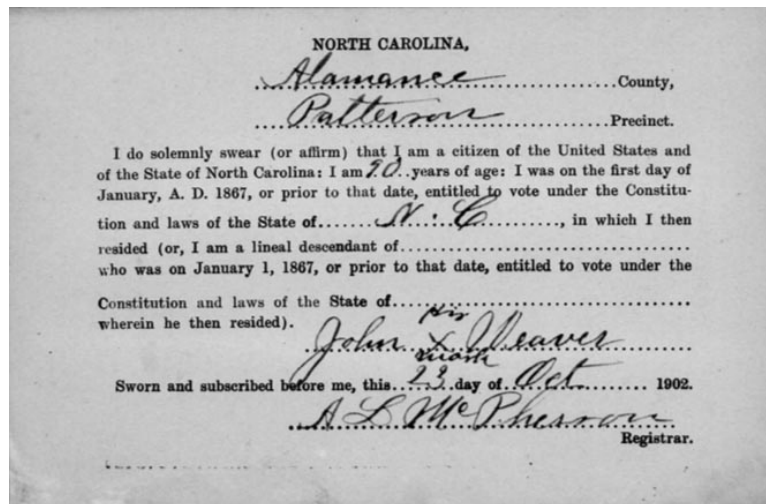 NORTH CAROLINA,
Alamance County,
Patterson Precinct.
I do solemnly swear (or affirm) that I am a citizen of the United States and
of the State of North Carolina: I am 70 years of age: I was on the first day of
January, A. D. 1867, or prior to that date, entitled to vote under the Constitu-
tion and laws of the State of N. C, in which I then
resided (or, I am a lineal descendant of
who was on January 1, 1867, or prior to that date, entitled to vote under the
Constitution and laws of the State of
wherein he then resided).
his
John X Weaver
mark
Sworn and subscribed before me, this 23 day of Oct. 1902.
A L McPherson
Registrar.